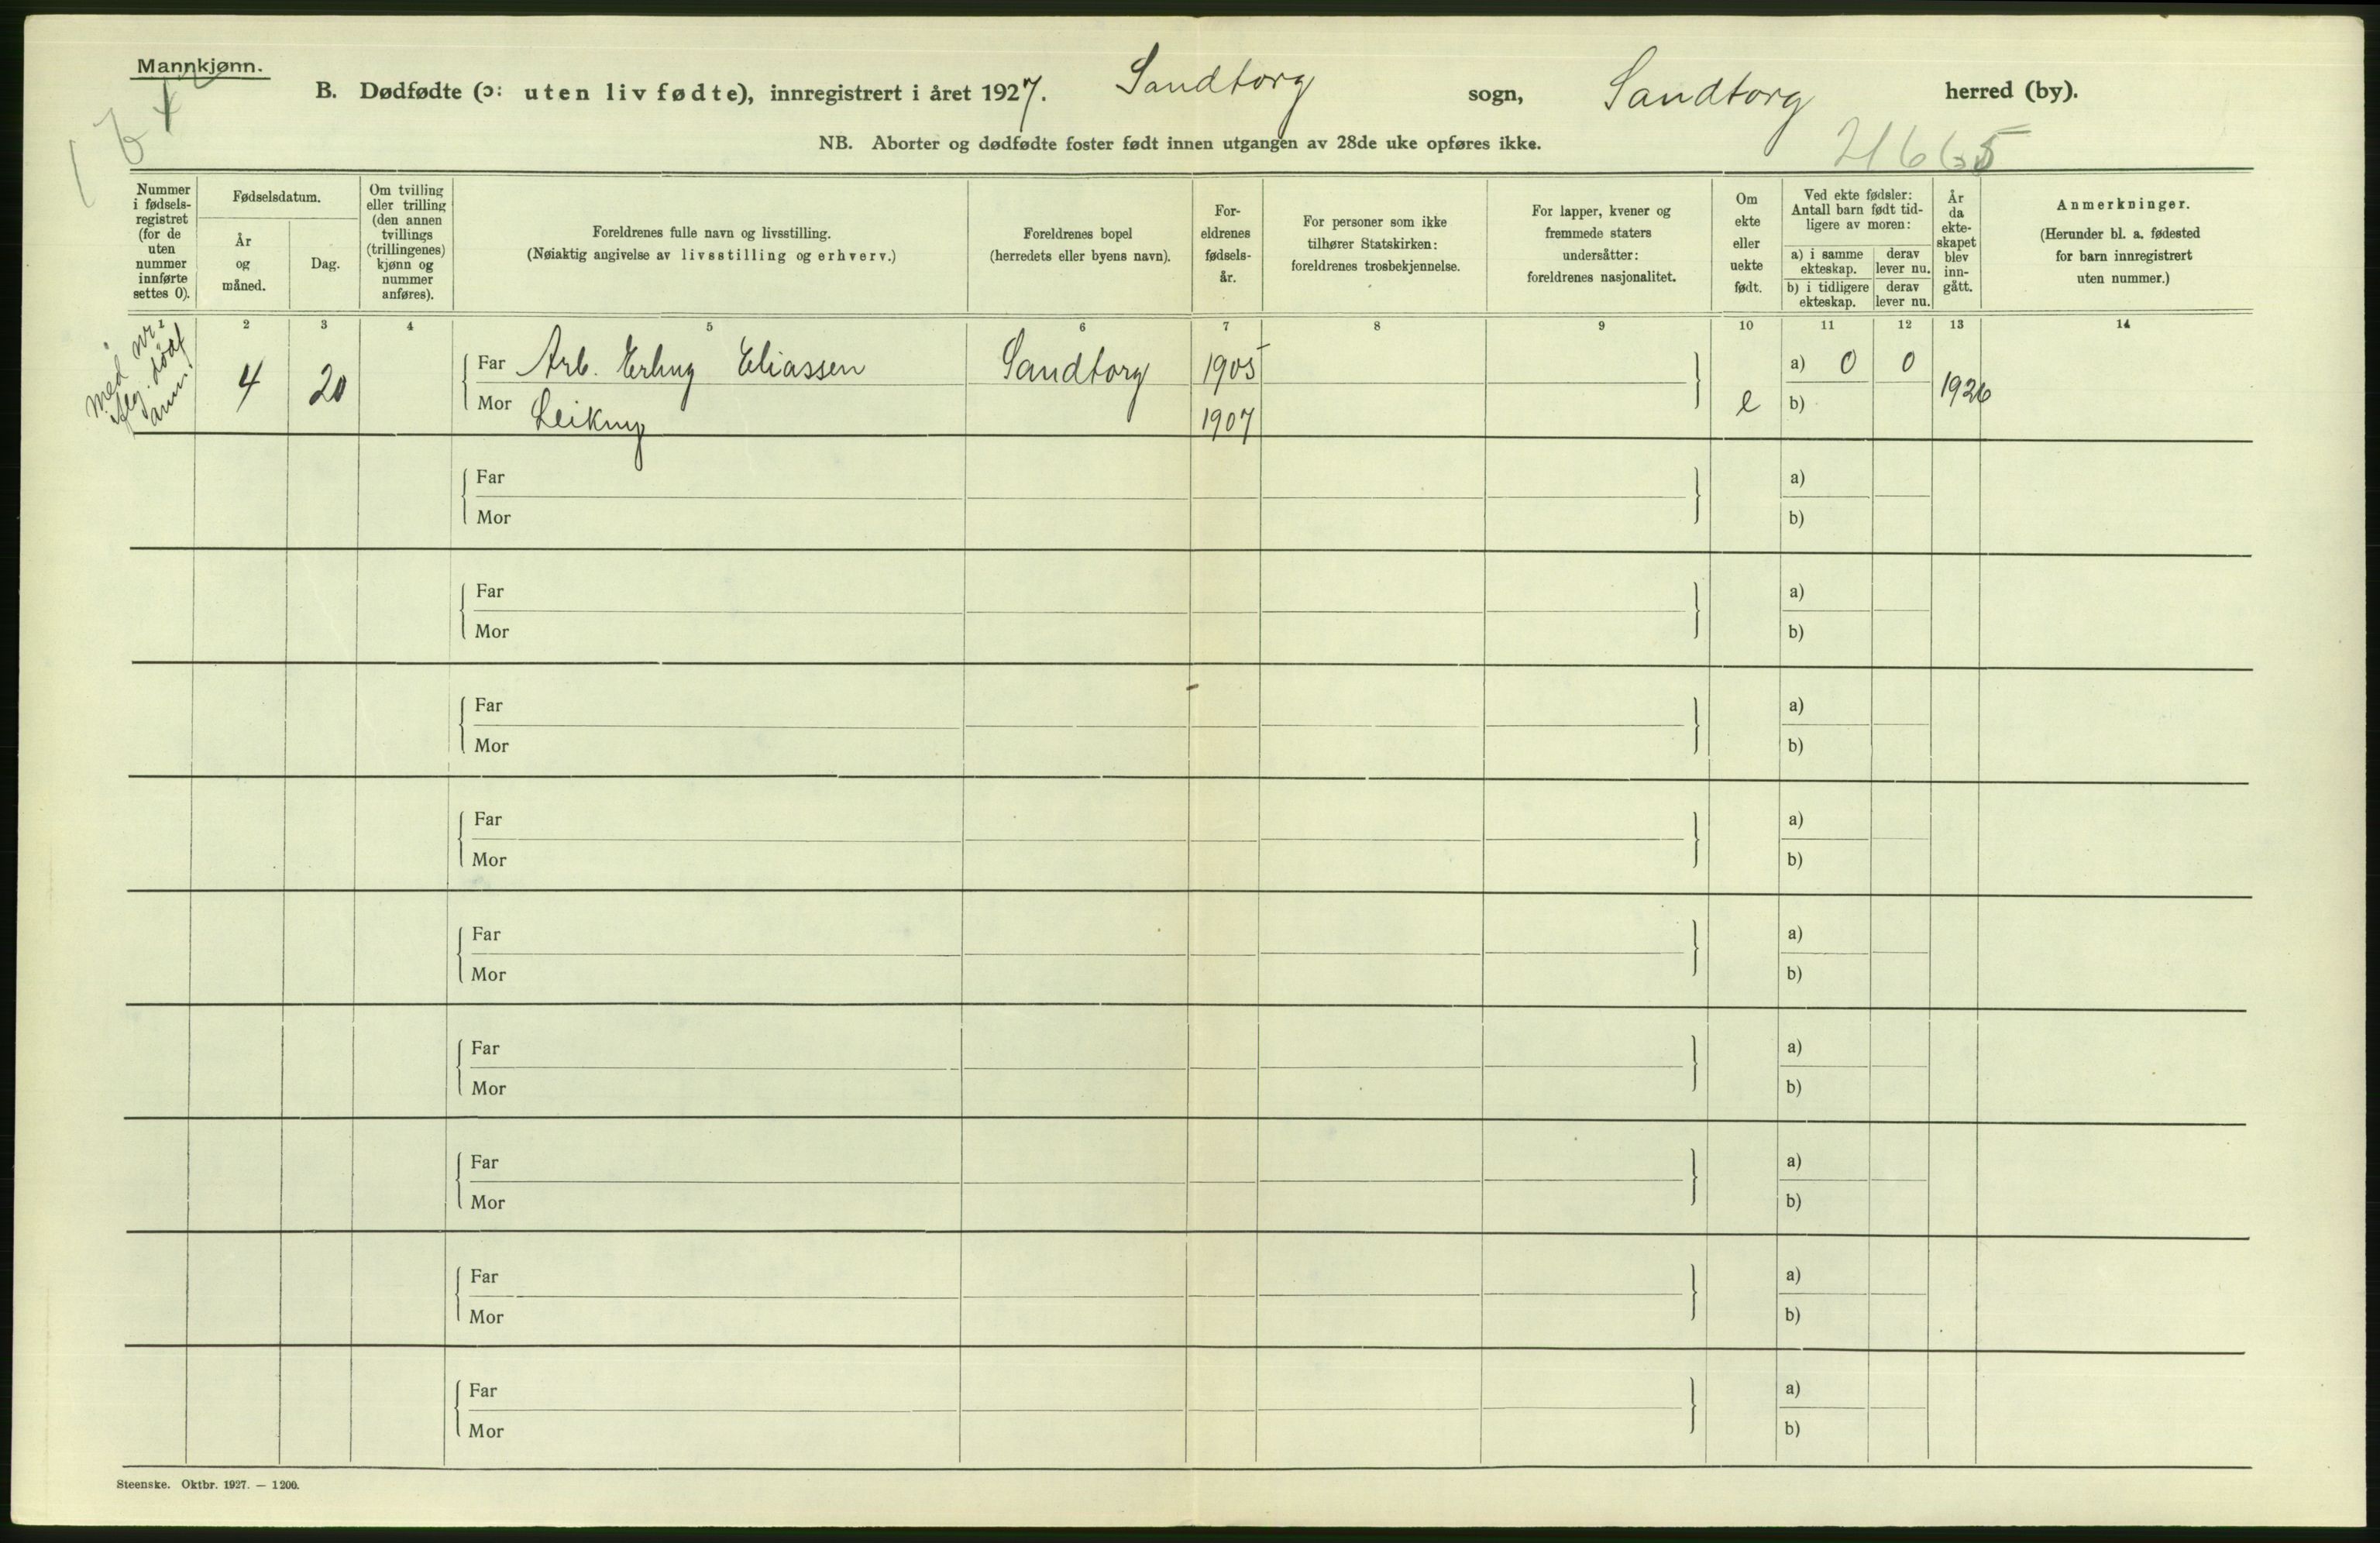 Mannkjønn.
B. Dødfødte (ɔ: uten liv fødte), innregistrert i året 1927. Sandtorg sogn, Sandtorg herred (by).
NB. Aborter og dødfødte foster født innen utgangen av 28de uke opføres ikke.
Nummer i fødsels-registret (for de uten nummer innførte settes 0).
Fødselsdatum.
År og måned.
Dag.
Om tvilling eller trilling (den annen tvillings (trillingenes) kjønn og nummer anføres).
Foreldrenes fulle navn og livsstilling.
(Nøiaktig angivelse av livsstilling og erhverv.)
Foreldrenes bopel
(herredets eller byens navn).
For-eldrenes fødsels-år.
For personer som ikke tilhører Statskirken: foreldrenes trosbekjennelse.
For lapper, kvener og fremmede staters undersåtter: foreldrenes nasjonalitet.
Om ekte eller uekte født.
Ved ekte fødsler: Antall barn født tid-ligere av moren:
a) i samme ekteskap. derav lever nu.
b) i tidligere ekteskap. derav lever nu.
År da ekte-skapet blev inn-gått.
Anmerkninger.
(Herunder bl. a. fødested for barn innregistrert uten nummer.)
2 3 4 5 6 7 8 9 10 11 12 13 14
med nr
4 20 Far Arb. Erling Eliassen Sandtorg 1905 a) 0 0 1926
Mor Leikny 1907 e b)
Far a)
Mor b)
Far a)
Mor b)
Far a)
Mor b)
Far a)
Mor b)
Far a)
Mor b)
Far a)
Mor b)
Far a)
Mor b)
Far a)
Mor b)
Far a)
Mor b)
Steenske. Oktbr. 1927. — 1200.